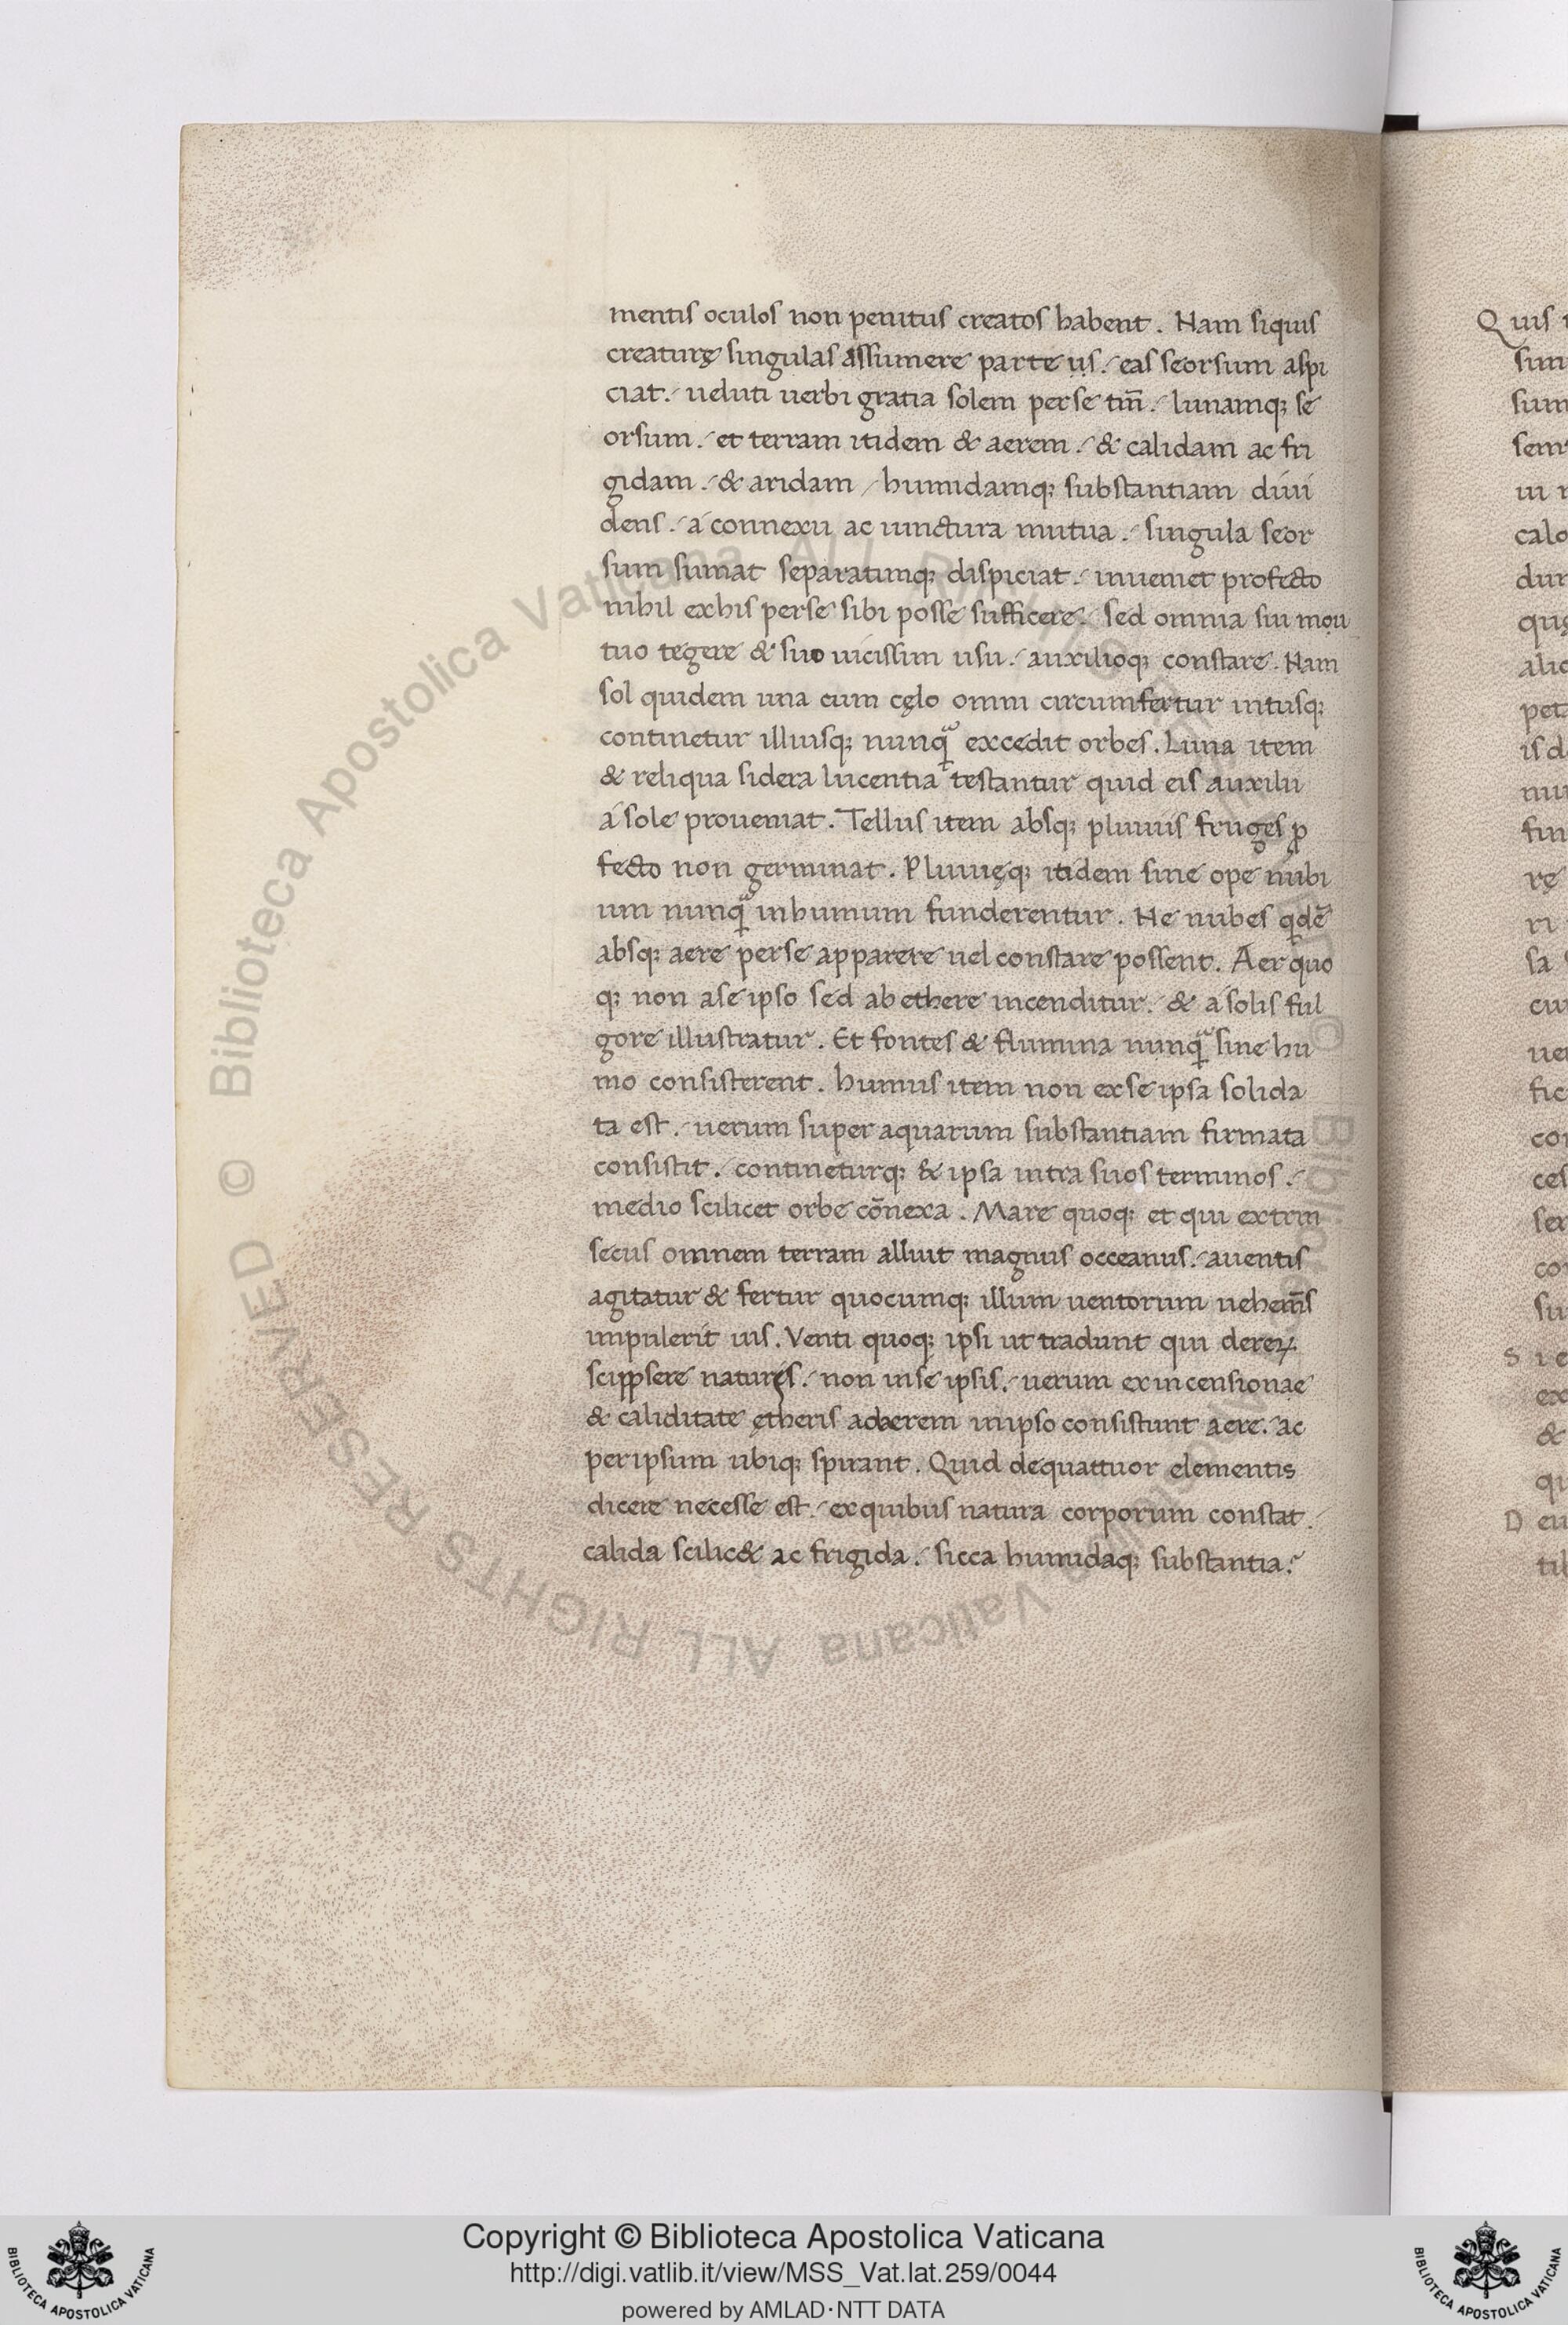 mentis oculos non penitus creatos habent . Nam siquis
creaturę singulas assumere parte us ./ eas seorsum aspi
ciat ./ ueluti uerbi gratia solem perse tm̄ ./ lunamq; se
orsum ./ et terram itidem & aerem ./ & calidam ac fri
gidam ./ & aridam / humidamq; substantiam diui
dens ./ a connexu ac iunctura mutua ./ singula seor
sum sumat separatimq; dispiciat ./ inueniet profecto
nihil exhis perse sibi posse sufficere ./ sed omnia sui mou
tuo tegere & suo uicissim usu ./ auxilioq; constare . Nam
sol quidem una cum cęlo omni circumfertur intusq;
continetur illiusq; nunq̃ excedit orbes . Luna item
& reliqua sidera lucentia testantur quid eis auxilii
a sole proueniat . Tellus item absq; pluuiis fruges ꝓ
fecto non germinat . Pluuięq; itidem sine ope nubi
um nunq̃ inhumum funderentur . Ne nubes qdē
absq; aere perse apparere uel constare possent . Aer quo
q; non ase ipso sed ab ethere incenditur ./ & a solis ful
gore illustratur . Et fontes & flumina nunq̃ sine hu
mo consisterent . humus item non exse ipsa solida
ta est ./ uerum super aquarum substantiam firmata
consistit ./ contineturq; & ipsa intra suos terminos ./
medio scilicet orbe cōnexa . Mare quoq; et qui extrin
secus omnem terram alluit magnus occeanus ./ auentis
agitatur & fertur quocumq; illum uentorum uehem̄s
impulerit uis . Venti quoq; ipsi ut tradunt qui dereꝝ
scripsere naturęs ./ non inse ipsis ./ uerum exincensionae
& caliditate ętheris adaerem inipso consistunt aere ./ ac
peripsum ubiq; spirant . Quid dequattuor elementis
dicere necesse est ./ exquibus natura corporum constat ./
calida scilic& ac frigida ./ sicca humidaq; substantia ?
Copyright © Biblioteca Apostolica Vaticana
http://digi.vatlib.it/view/MSS_Vat.lat.259/0044
powered by AMLAD·NTT DATA